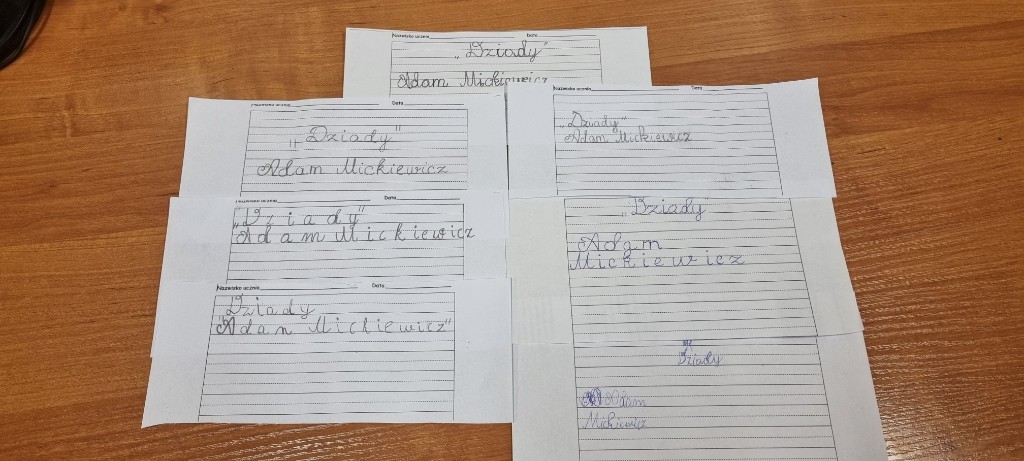 Nazwisko ucznia Data
„Dziady"
Adam Mickiewicz
Nazwisko ucznia Data
„Dziady"
Adam Mickiewicz
Nazwisko ucznia Data
„Dziady"
Adam Mickiewicz
Nazwisko ucznia Data
„Dziady"
Adam Mickiewicz
„Dziady
Adam
Mickiewicz
Nazwisko ucznia Data
Dziady
"Adan Mickiewicz"
Dziady
Adam
Mickiewicz